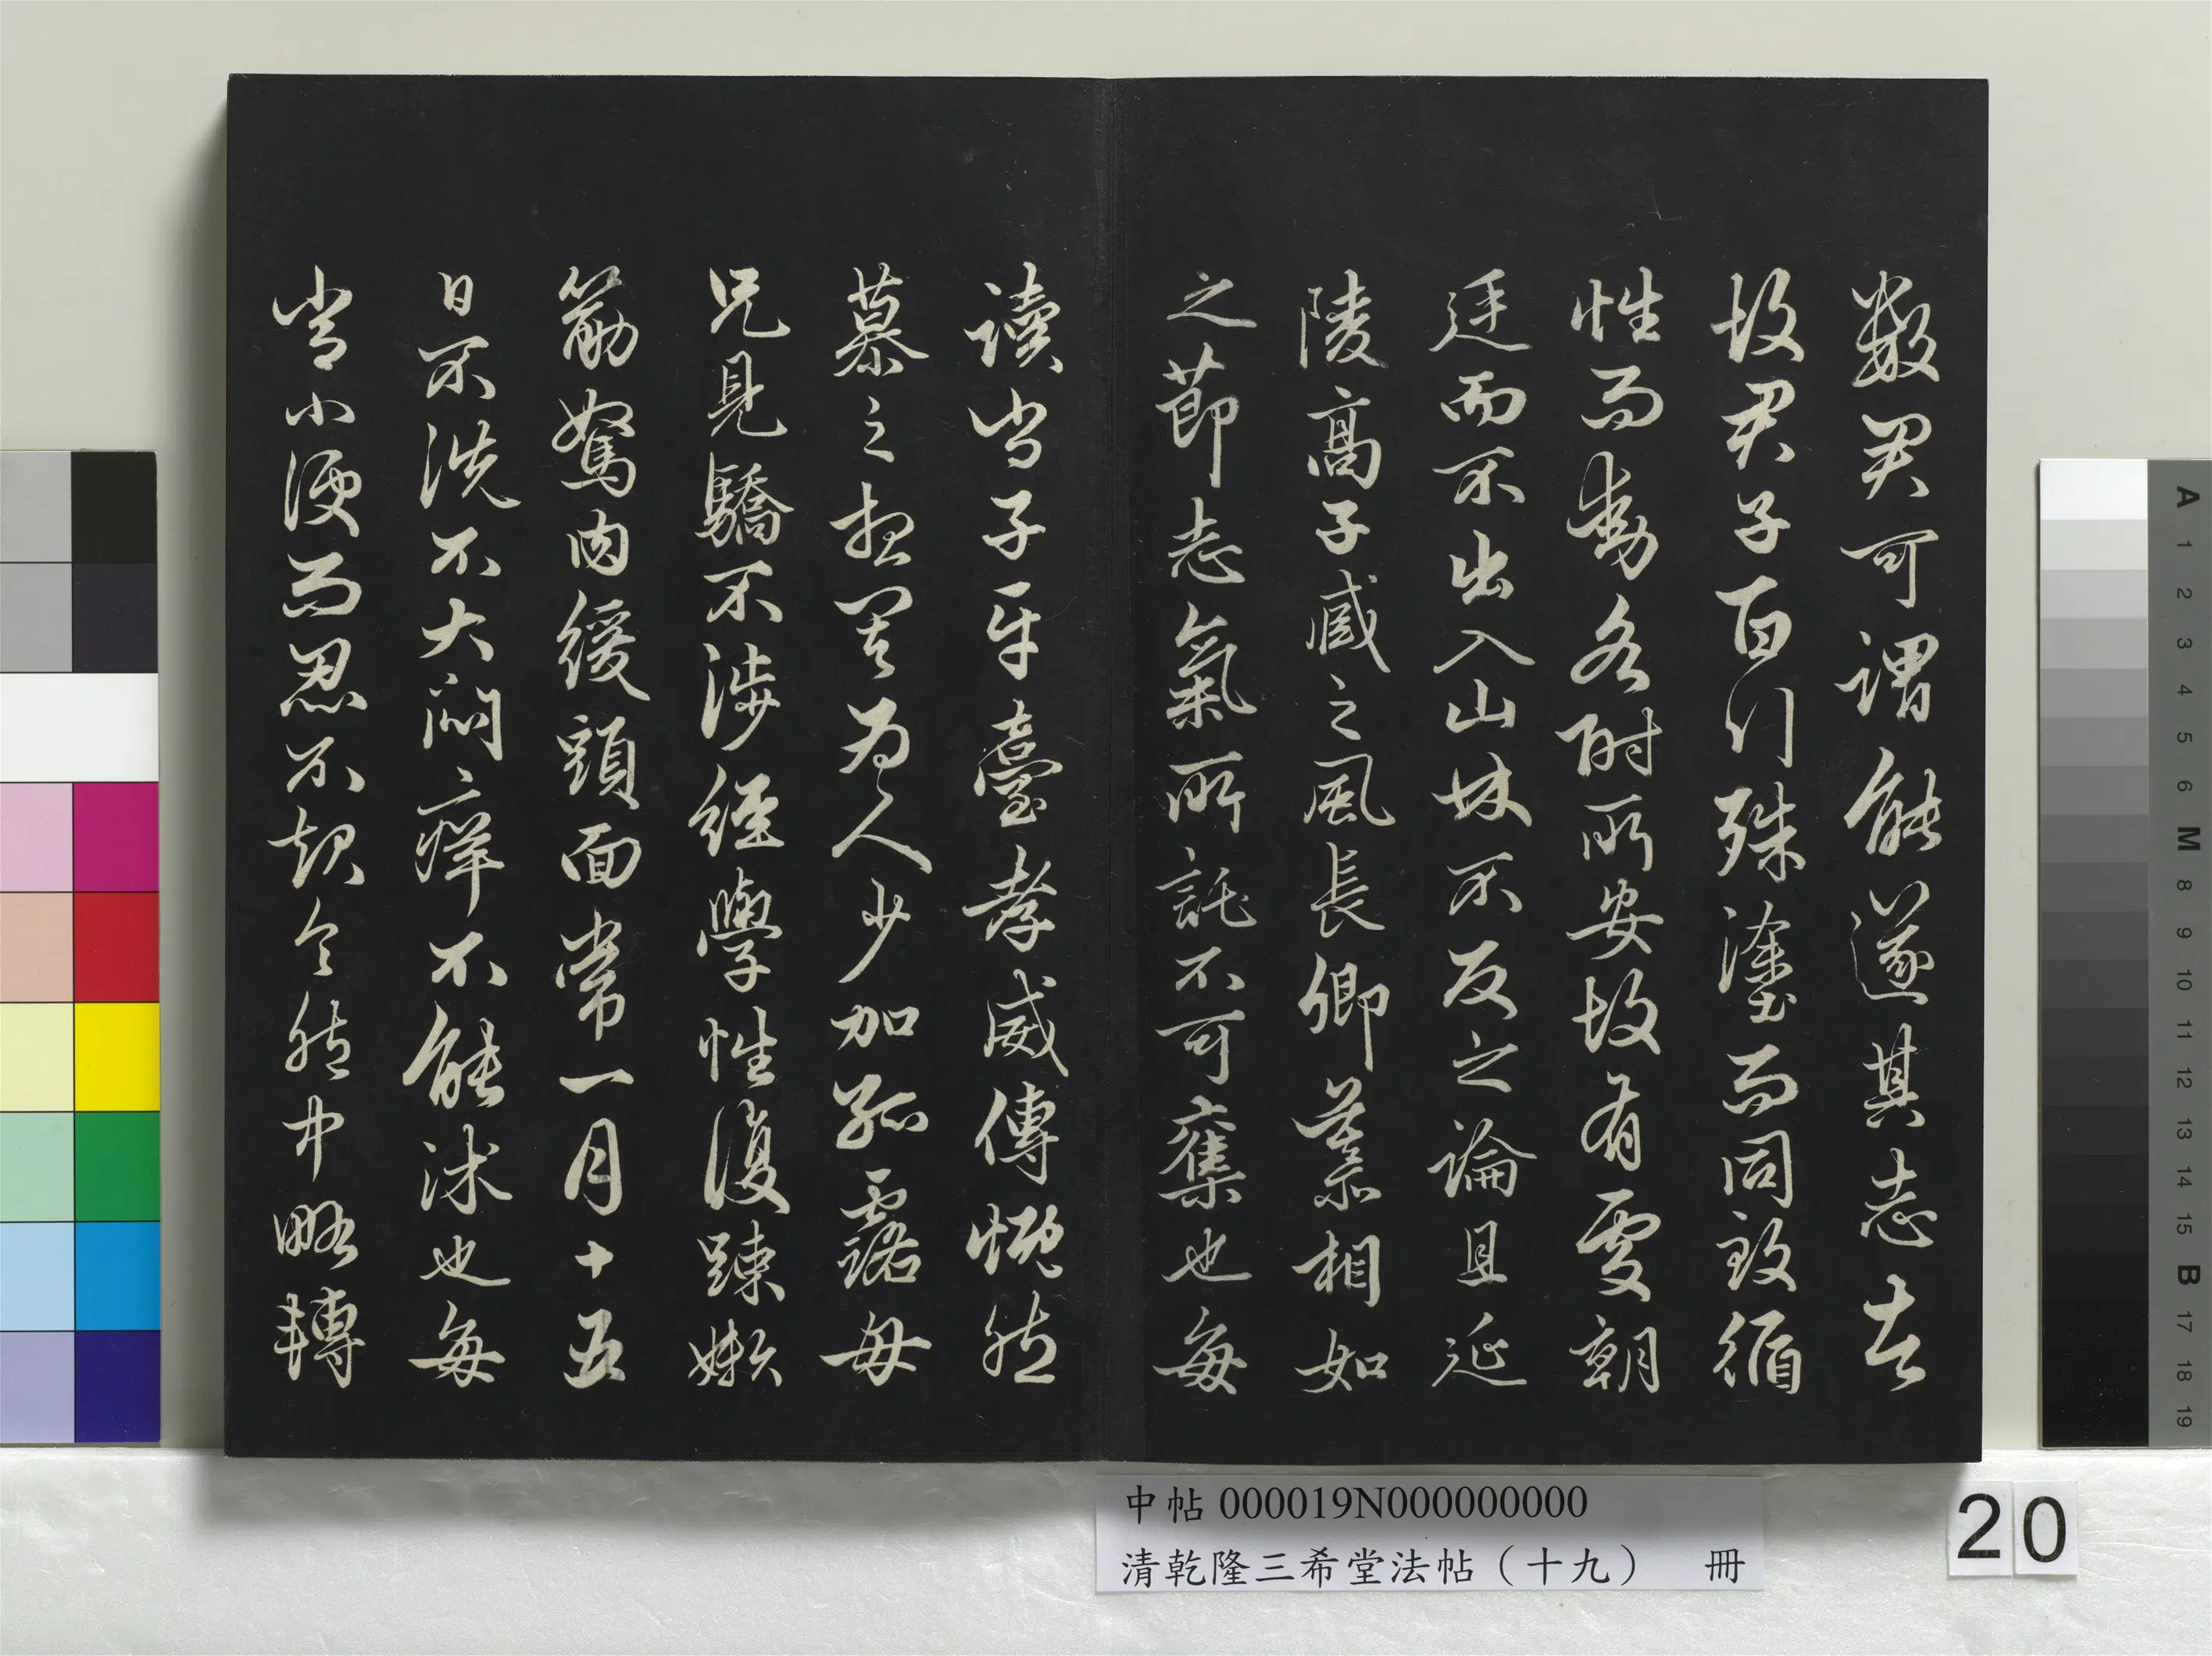 數君可謂能遂其志者
故君子百行殊塗而同致循
性而動各附所安故有處朝
廷而不出入山林不反之論且延
陵高子臧之風長卿慕相如
之節志氣所託不可奪也每
讀尚子平臺孝威傳慨然
慕之想其為人少加孤露母
兄見驕不涉經學性復疎嬾
筋駑肉緩頭面常一月十五
日不洗不大悶痒不能沐也每
當小便而忍不起令胞中略轉
中帖 000019N000000000
清乾隆三希堂法帖（十九） 冊
20
A 1 2 3 4 5 6 M 8 9 10 11 12 13 14 15 B 17 18 19